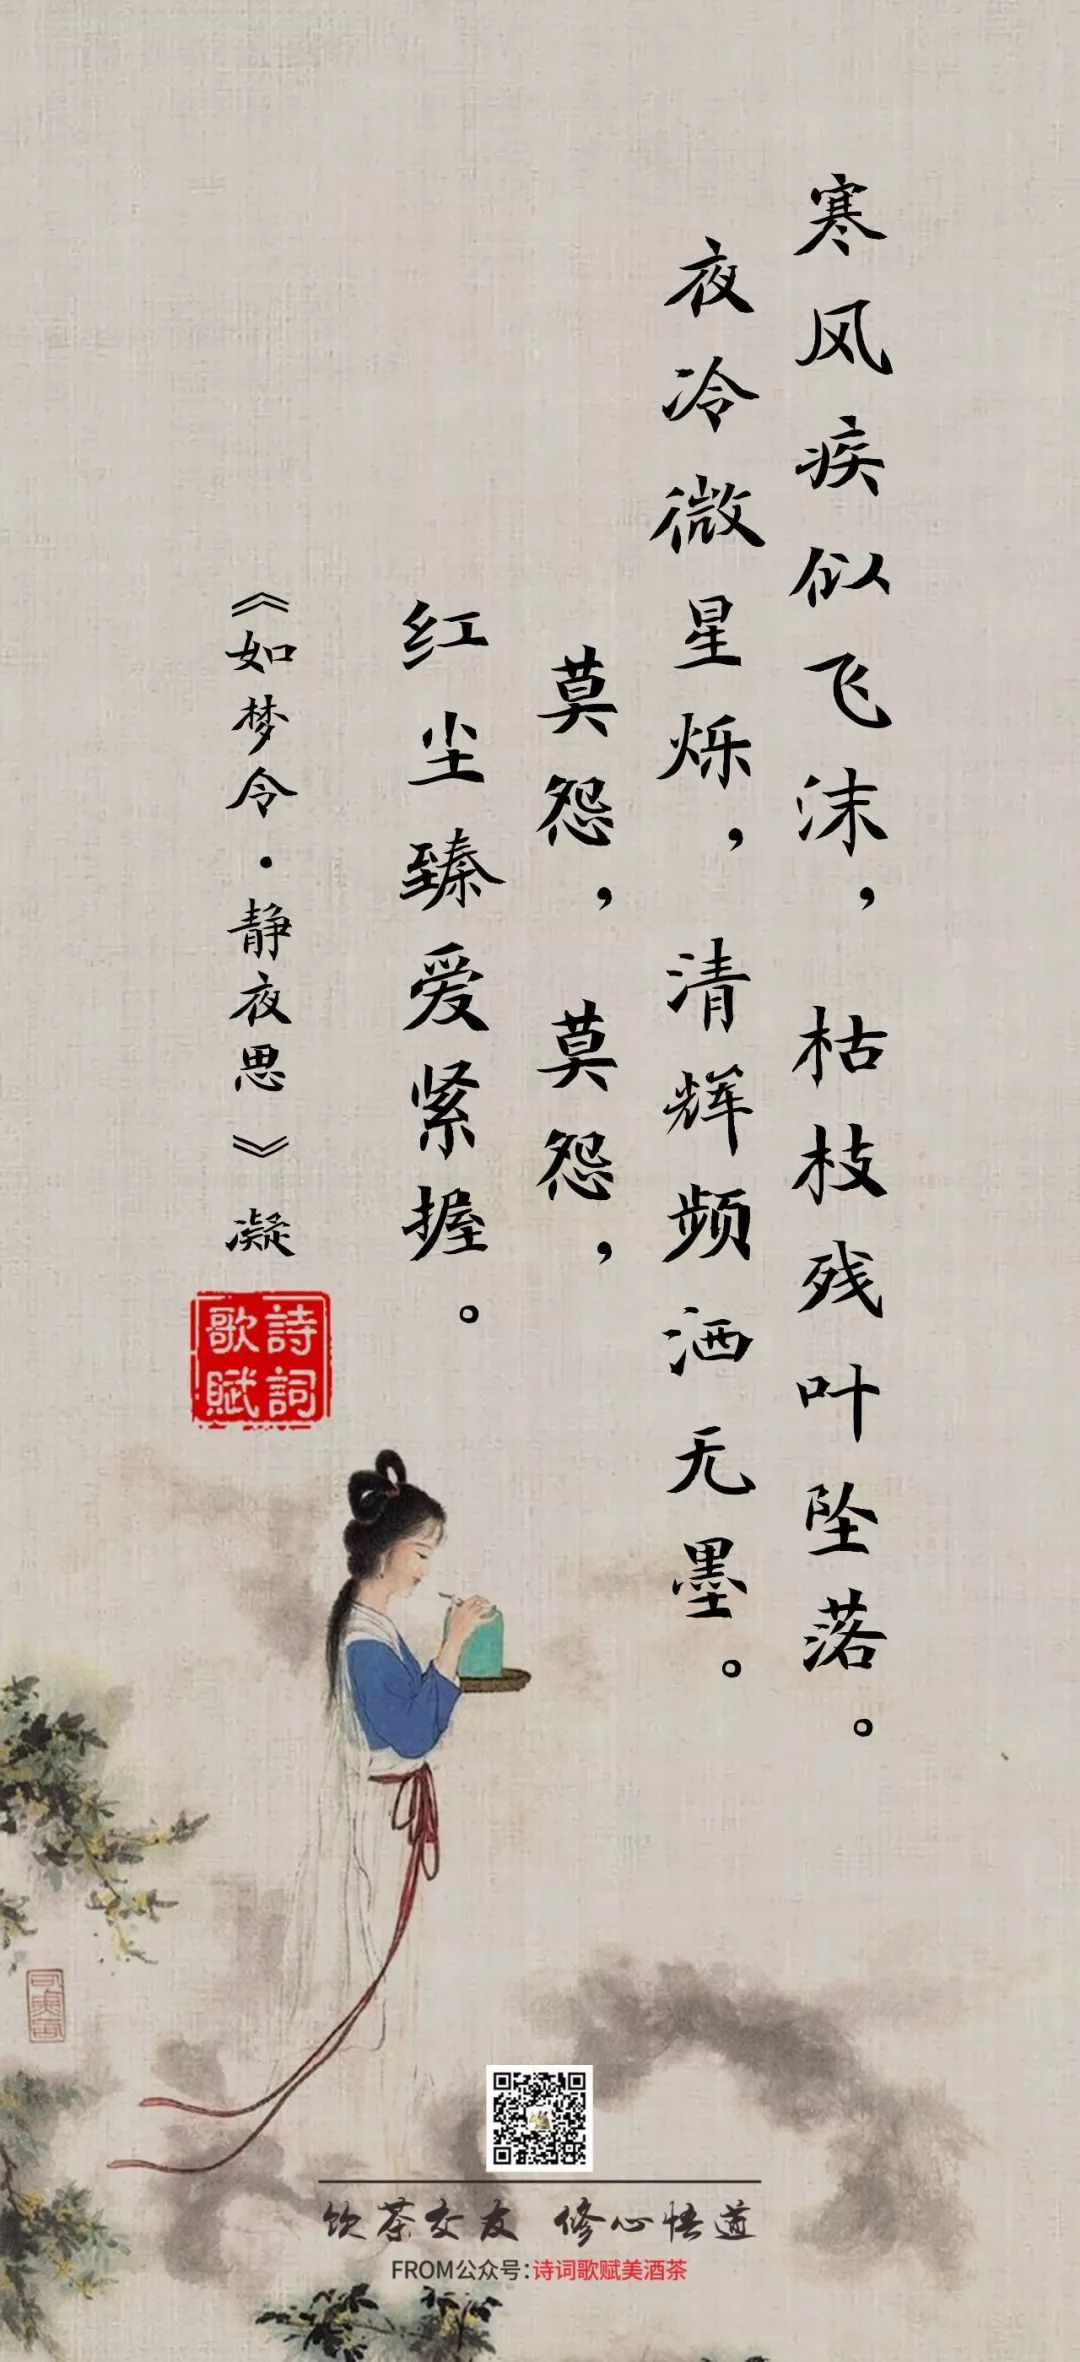 寒风疾似飞沫，枯枝残叶坠落。
夜冷微星烁，清辉频洒无墨。
莫怨，莫怨，
红尘臻爱紧握。
《如梦令·静夜思》凝
詩詞歌賦
饮茶交友 修心悟道
FROM公众号:诗词歌赋美酒茶